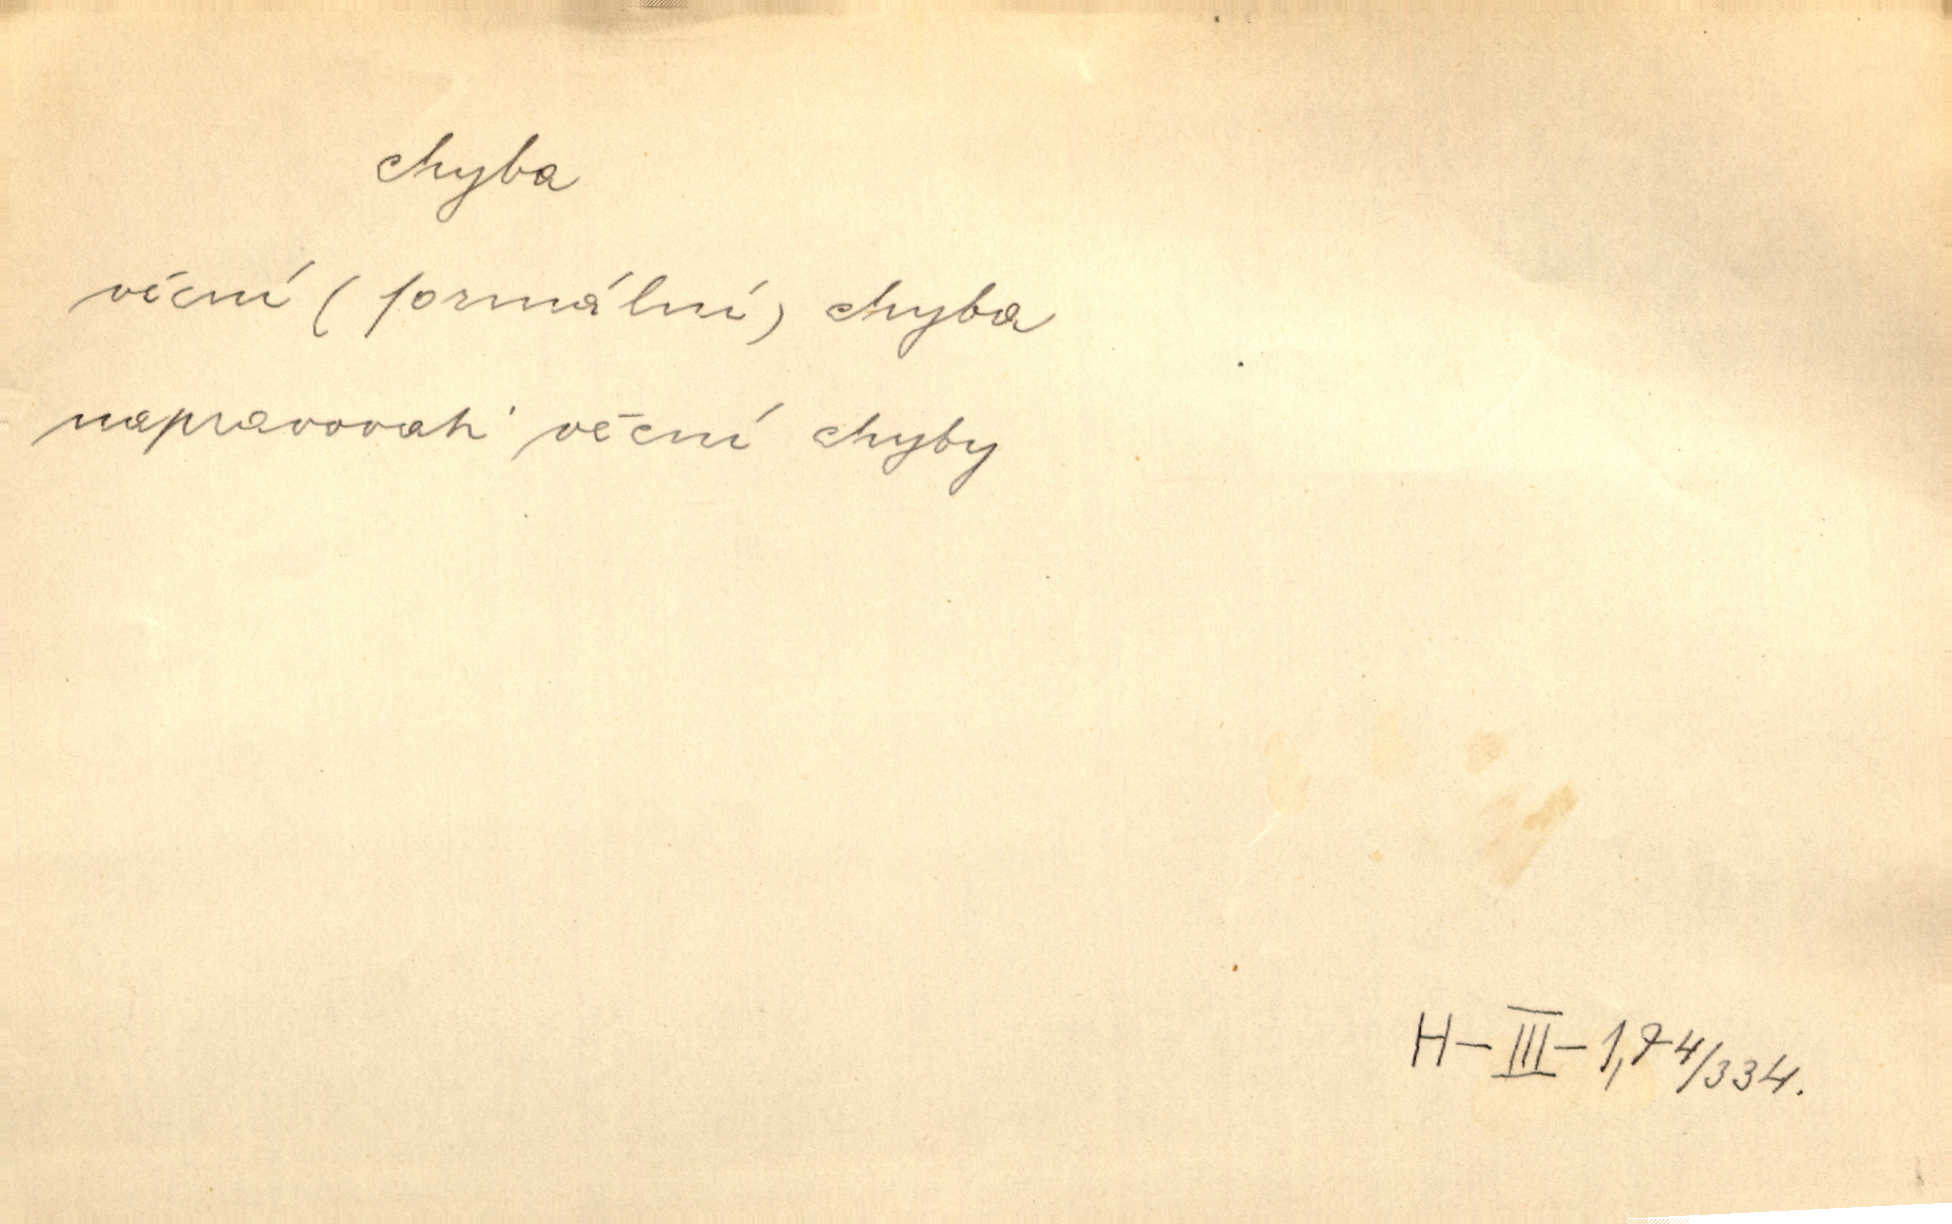 chyba
věcní (formální) chyba
napravovati věcní chyby
H-III-1,74/334.